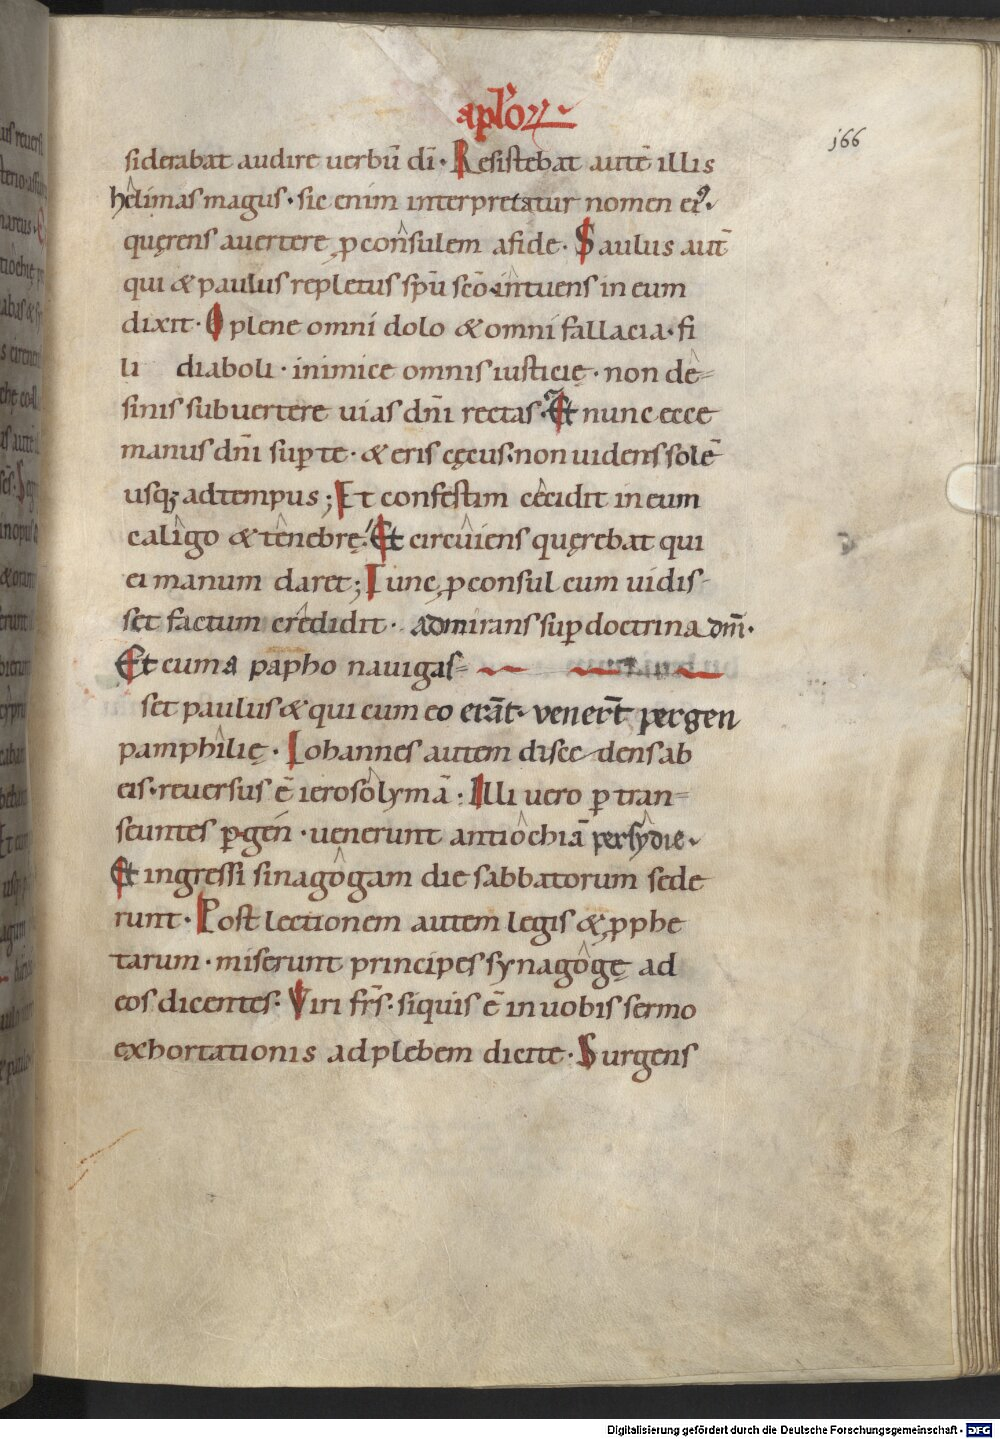 apłoꝝ
j66
siderabat audire uerbū dī· Resistebat autē illis
hêlimas magus· sic enim interpretatur nomen eiꝰ·
quęrens auertere ꝓconsulem afide· Saulus aut̄
qui & paulus repletus spū scō intuens in eum
dixit· O plene omni dolo & omni fallacia· fi
li diaboli· inimice omnis iusticię· non dê
sinis subuertere uias dn̄i rectas· Et nunc ecce
manus dn̄i suꝑ te· & eris cęcus· non uidens solē
usqꝫ adtempus; Et confestim cêcidit in eum
calîgo & tênebrę· Et circûiens quęrebat qui
ei manum daret; Tunc ꝓconsul cum uidis-
set factum crêdidit· admirans suꝑ doctrina dn̄i·
Et cum a papho nauigas-
set paulus & qui cum eo erāt· venert̄ pergen
pamphîlię· Iohannes autem disce dens ab
eis· reuersus ē ierosôlymā· Illi uero ꝑ tran-
seuntes ꝑgen· uenerunt antiôchiā persŷdie·
Et ingressi sinagôgam die sabbatorum sede
runt· Post lectionem autem legis & ꝓphe
tarum· miserunt principes synagôgę ad
eos dicentes· Viri frs̄· siquis ē in uobis sermo
exhortationis ad plebem dicite· Surgens
Digitalisierung gefördert durch die Deutsche Forschungsgemeinschaft - DFG